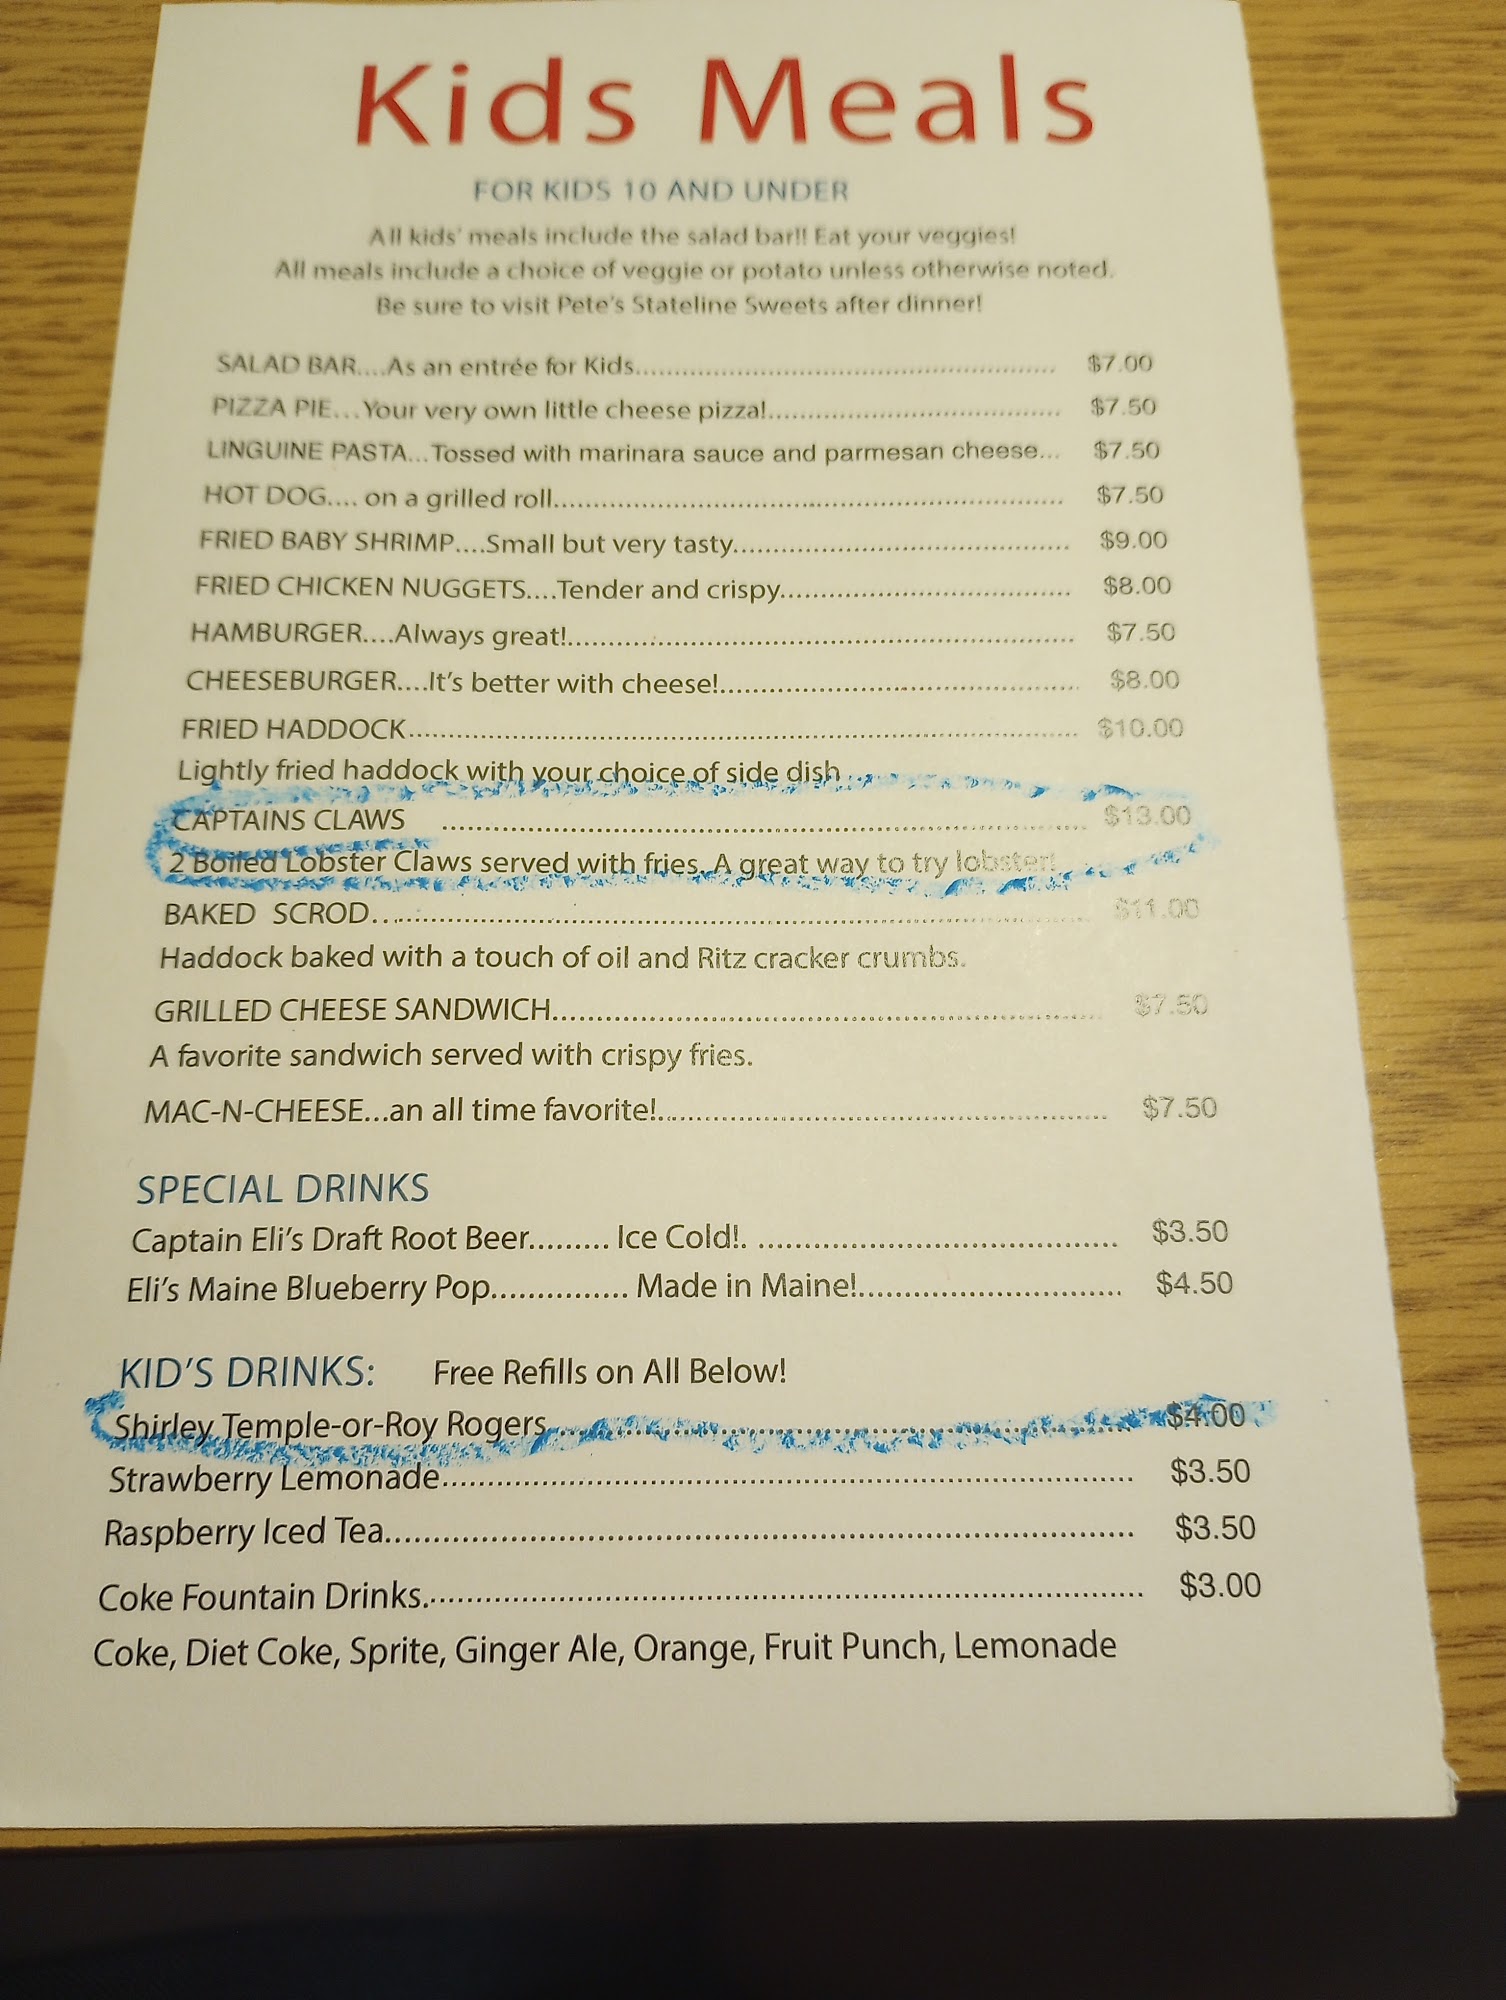 Kids Meals
FOR KIDS 10 AND UNDER
All kids' meals include the salad bar!! Eat your veggies!
All meals include a choice of veggie or potato unless otherwise noted.
Be sure to visit Pete's Stateline Sweets after dinner!
SALAD BAR....As an entrée for Kids.................................................... $7.00
PIZZA PIE...Your very own little cheese pizza!.................................... $7.50
LINGUINE PASTA...Tossed with marinara sauce and parmesan cheese... $7.50
HOT DOG.... on a grilled roll............................................................... $7.50
FRIED BABY SHRIMP....Small but very tasty.......................................... $9.00
FRIED CHICKEN NUGGETS....Tender and crispy.................................... $8.00
HAMBURGER....Always great!.............................................................. $7.50
CHEESEBURGER....It's better with cheese!........................................... $8.00
FRIED HADDOCK................................................................................ $10.00
Lightly fried haddock with your choice of side dish
CAPTAINS CLAWS ............................................................................ $13.00
2 Boiled Lobster Claws served with fries. A great way to try lobster!
BAKED SCROD.................................................................................. $11.00
Haddock baked with a touch of oil and Ritz cracker crumbs.
GRILLED CHEESE SANDWICH............................................................. $7.50
A favorite sandwich served with crispy fries.
MAC-N-CHEESE...an all time favorite!.................................................. $7.50
SPECIAL DRINKS
Captain Eli's Draft Root Beer......... Ice Cold!. ....................................... $3.50
Eli's Maine Blueberry Pop............... Made in Maine!............................ $4.50
KID'S DRINKS: Free Refills on All Below!
Shirley Temple-or-Roy Rogers............................................................ $4.00
Strawberry Lemonade....................................................................... $3.50
Raspberry Iced Tea............................................................................ $3.50
Coke Fountain Drinks......................................................................... $3.00
Coke, Diet Coke, Sprite, Ginger Ale, Orange, Fruit Punch, Lemonade